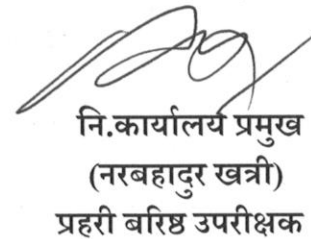 नि.कार्यालय प्रमुख
(नरबहादुर खत्री)
प्रहरी बरिष्ठ उपरीक्षक